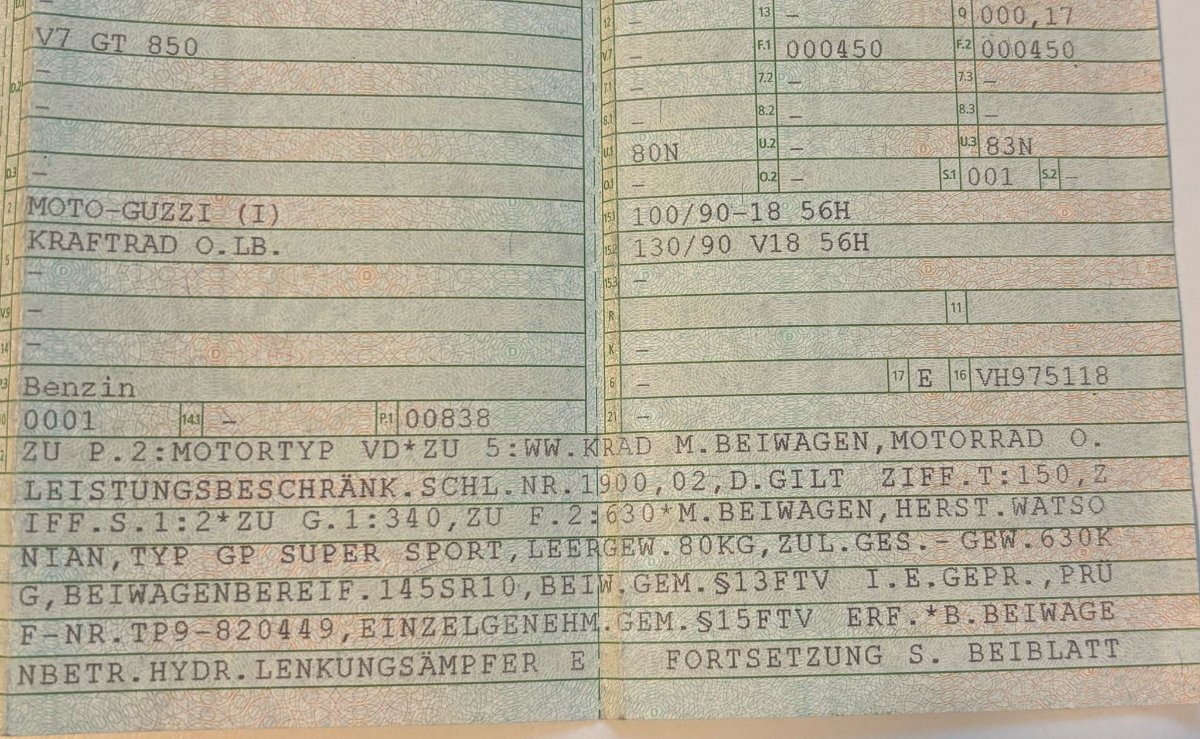 D.1 – 12 – 13 – Q 000,17
V7 GT 850 V.7 – F.1 000450 F.2 000450
D.2 – 7.1 – 7.2 – 7.3 –
– 8.1 – 8.2 – 8.3 –
U.1 80N U.2 – U.3 83N
D.3 – O.1 – O.2 – S.1 001 S.2 –
2 MOTO-GUZZI (I) 15.1 100/90-18 56H
5 KRAFTRAD O.LB. 15.2 130/90 V18 56H
– 15.3 –
V.9 – R 11
14 – K –
P.3 Benzin 6 – 17 E 16 VH975118
10 0001 14.1 – P.1 00838 21 –
ZU P.2:MOTORTYP VD*ZU 5:WW.KRAD M.BEIWAGEN,MOTORRAD O.
LEISTUNGSBESCHRÄNK.SCHL.NR.1900,02,D.GILT ZIFF.T:150,Z
IFF.S.1:2*ZU G.1:340,ZU F.2:630*M.BEIWAGEN,HERST.WATSO
NIAN,TYP GP SUPER SPORT,LEERGEW.80KG,ZUL.GES.-GEW.630K
G,BEIWAGENBEREIF.145SR10,BEIW.GEM.§13FTV I.E.GEPR.,PRÜ
F-NR.TP9-820449,EINZELGENEHM.GEM.§15FTV ERF.*B.BEIWAGE
NBETR.HYDR.LENKUNGSÄMPFER E FORTSETZUNG S. BEIBLATT